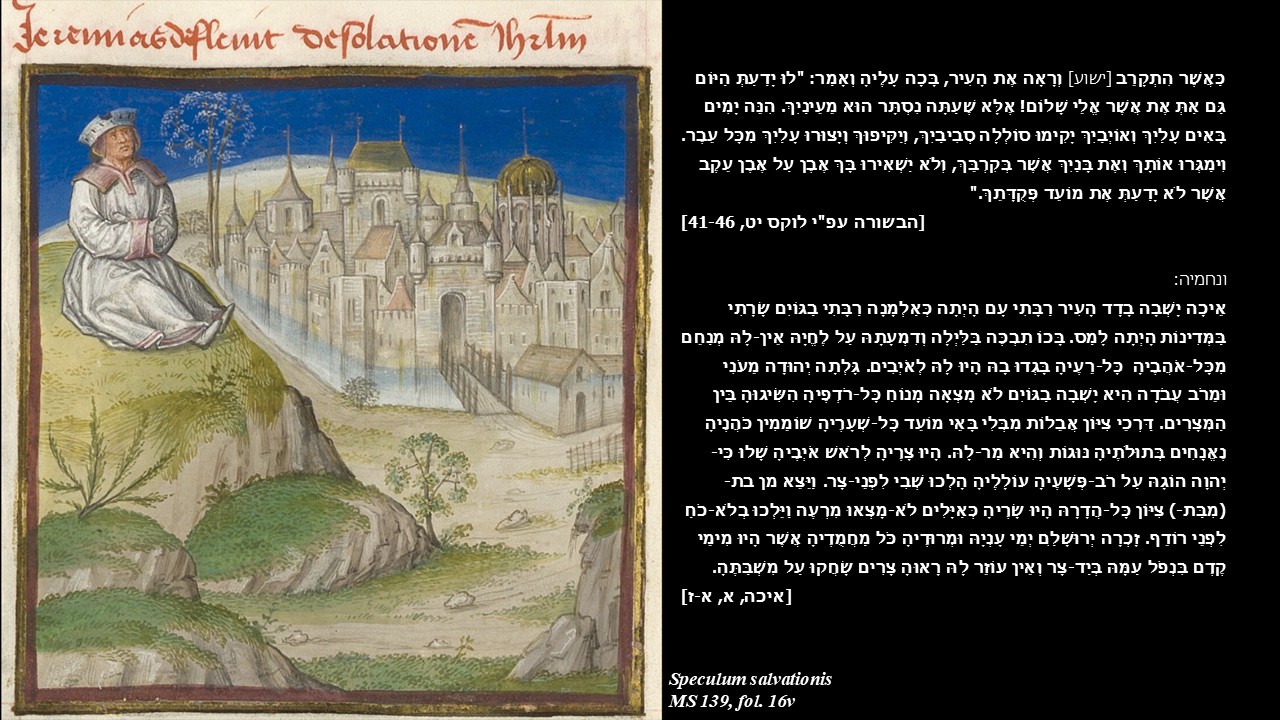 Jeremias deflevit desolatione Jhrlm
כַּאֲשֶׁר הִתְקָרֵב [ישוע] וְרָאָה אֶת הָעִיר, בָּכָה עָלֶיהָ וְאָמַר: "לוּ יָדַעַתְּ הַיּוֹם
גַּם אַתְּ אֶת אֲשֶׁר אֱלֵי שָׁלוֹם! אֶלָּא שֶׁעַתָּה נִסְתָּר הוּא מֵעֵינַיִךְ. הִנֵּה יָמִים
בָּאִים עָלַיִךְ וְאוֹיְבַיִךְ יָקִימוּ סוֹלְלָה סְבִיבַיִךְ, וְיַקִּיפוּךְ וְיָצוּרוּ עָלַיִךְ מִכָּל עֵבֶר.
וִימַגְּרוּ אוֹתָךְ וְאֶת בָּנַיִךְ אֲשֶׁר בְּקִרְבֵּךְ, וְלֹא יַשְׁאִירוּ בָּךְ אֶבֶן עַל אֶבֶן עֵקֶב
אֲשֶׁר לֹא יָדַעַתְּ אֶת מוֹעֵד פְּקֻדָּתֵךְ."
[הבשורה עפ"י לוקס יט, 41-46]
ונחמיה:
אֵיכָה יָשְׁבָה בָדָד הָעִיר רַבָּתִי עָם הָיְתָה כְּאַלְמָנָה רַבָּתִי בַגּוֹיִם שָׂרָתִי
בַּמְּדִינוֹת הָיְתָה לָמַס. בָּכוֹ תִבְכֶּה בַּלַּיְלָה וְדִמְעָתָהּ עַל לֶחֱיָהּ אֵין-לָהּ מְנַחֵם
מִכָּל-אֹהֲבֶיהָ כָּל-רֵעֶיהָ בָּגְדוּ בָהּ הָיוּ לָהּ לְאֹיְבִים. גָּלְתָה יְהוּדָה מֵעֹנִי
וּמֵרֹב עֲבֹדָה הִיא יָשְׁבָה בַגּוֹיִם לֹא מָצְאָה מָנוֹחַ כָּל-רֹדְפֶיהָ הִשִּׂיגוּהָ בֵּין
הַמְּצָרִים. דַּרְכֵי צִיּוֹן אֲבֵלוֹת מִבְּלִי בָּאֵי מוֹעֵד כָּל-שְׁעָרֶיהָ שׁוֹמֵמִין כֹּהֲנֶיהָ
נֶאֱנָחִים בְּתוּלֹתֶיהָ נּוּגוֹת וְהִיא מַר-לָהּ. הָיוּ צָרֶיהָ לְרֹאשׁ אֹיְבֶיהָ שָׁלוּ כִּי-
יְהוָה הוֹגָהּ עַל רֹב-פְּשָׁעֶיהָ עוֹלָלֶיהָ הָלְכוּ שְׁבִי לִפְנֵי-צָר. וַיֵּצֵא מן בת-
(מִבַּת-) צִיּוֹן כָּל-הֲדָרָהּ הָיוּ שָׂרֶיהָ כְּאַיָּלִים לֹא-מָצְאוּ מִרְעֶה וַיֵּלְכוּ בְלֹא-כֹחַ
לִפְנֵי רוֹדֵף. זָכְרָה יְרוּשָׁלִַם יְמֵי עָנְיָהּ וּמְרוּדֶיהָ כֹּל מַחֲמֻדֶיהָ אֲשֶׁר הָיוּ מִימֵי
קֶדֶם בִּנְפֹל עַמָּהּ בְּיַד-צָר וְאֵין עוֹזֵר לָהּ רָאוּהָ צָרִים שָׂחֲקוּ עַל מִשְׁבַּתֶּהָ.
[איכה, א, א-ז]
Speculum salvationis
MS 139, fol. 16v